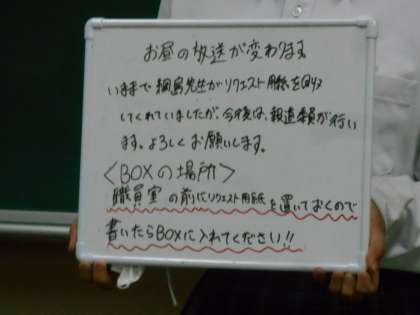 お昼の放送が変わります
いままで 綱島先生がリクエスト用紙を回収
してくれていましたが、今後は、報道委員が行い
ます。よろしくお願いします。
<BOXの場所>
職員室 の前にリクエスト用紙を置いておくので
書いたらBOXに入れてください!!